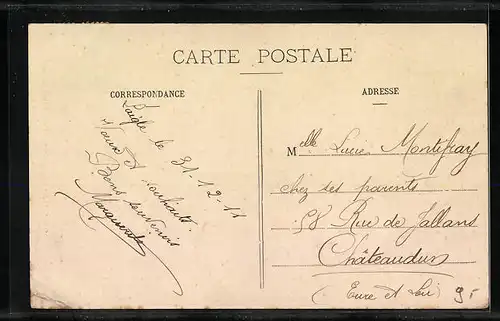 CARTE POSTALE
CORRESPONDANCE
Laigle le 31-12-11
Vœux et souhaits.
Bons souvenirs
Marguerite
ADRESSE
Melle Lucie Montefray
chez ses parents
58 Rue de Jallans
Châteaudun
(Eure et Loir)